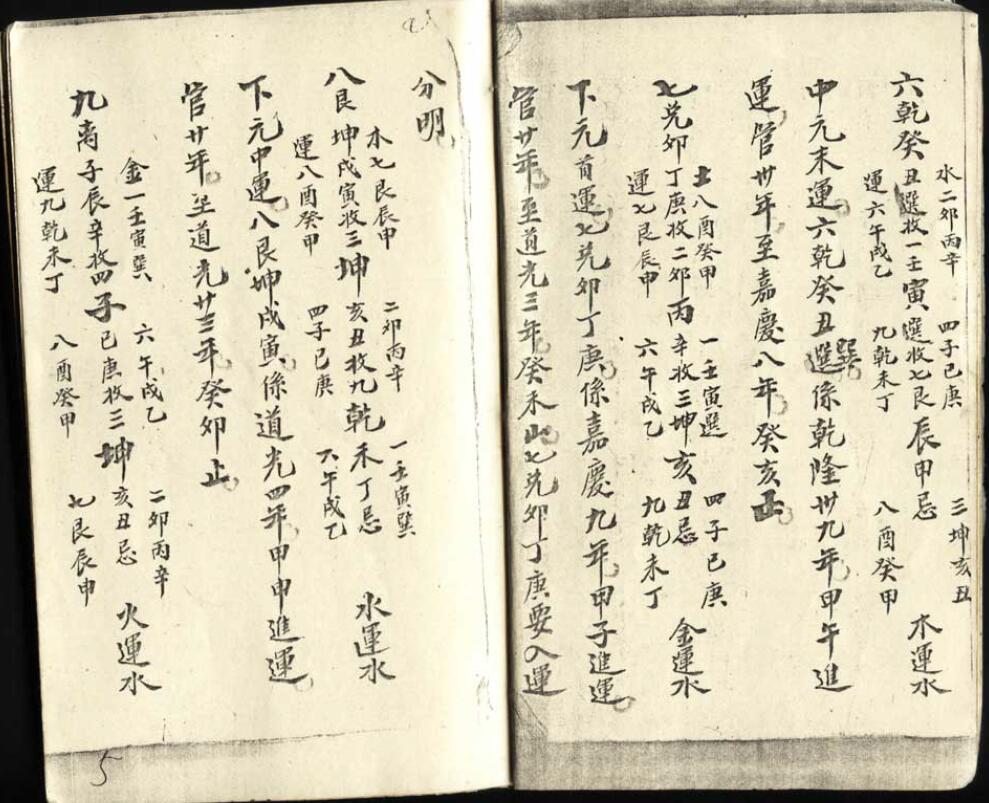 水二卯丙辛　四子己庚　三坤亥丑
六乾癸丑選收一壬寅選收七艮辰甲忌　木運水
運六午戌乙　九乾未丁　八酉癸甲
中元末運六乾癸丑選巽係乾隆卅九年甲午進
運管卅年至嘉慶八年癸亥止
土八酉癸甲　一壬寅選　四子己庚
七兌卯丁庚收二卯丙辛收三坤亥丑忌　金運水
運七艮辰甲　六午戌乙　九乾未丁
下元首運七兌卯丁庚係嘉慶九年甲子進運
管廿年至道光三年癸未止七兌卯丁庚要入運
分明
木七艮辰甲　二卯丙辛　一壬寅巽
八艮坤戌寅收三坤亥丑收九乾未丁忌　水運水
運八酉癸甲　四子己庚　六午戌乙
下元中運八艮坤戌寅係道光四年甲申進運
管廿年至道光廿三年癸卯止
金一壬寅巽　六午戌乙　二卯丙辛
九离子辰辛收四子己庚收三坤亥丑忌　火運水
運九乾未丁　八酉癸甲　七艮辰申
5